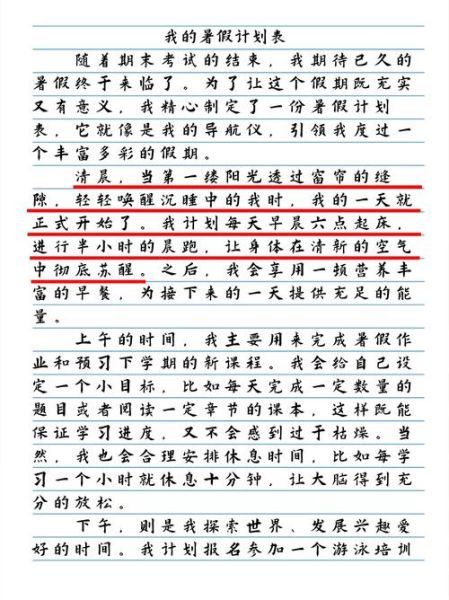 我的暑假计划表
随着期末考试的结束，我期待已久的
暑假终于来临了。为了让这个假期既充实
又有意义，我精心制定了一份暑假计划
表，它就像是我的导航仪，引领我度过一
个丰富多彩的假期。
清晨，当第一缕阳光透过窗帘的缝
隙，轻轻唤醒沉睡中的我时，我的一天就
正式开始了。我计划每天早晨六点起床，
进行半小时的晨跑，让身体在清新的空气
中彻底苏醒。之后，我会享用一顿营养丰
富的早餐，为接下来的一天提供充足的能
量。
上午的时间，我主要用来完成暑假作
业和预习下学期的新课程。我会给自己设
定一个小目标，比如每天完成一定数量的
题目或者阅读一定章节的课本，这样既能
保证学习进度，又不会感到过于枯燥。当
然，我也会合理安排休息时间，比如每学
习一个小时就休息十分钟，让大脑得到充
分的放松。
下午，则是我探索世界、发展兴趣爱
好的时间。我计划报名参加一个游泳培训